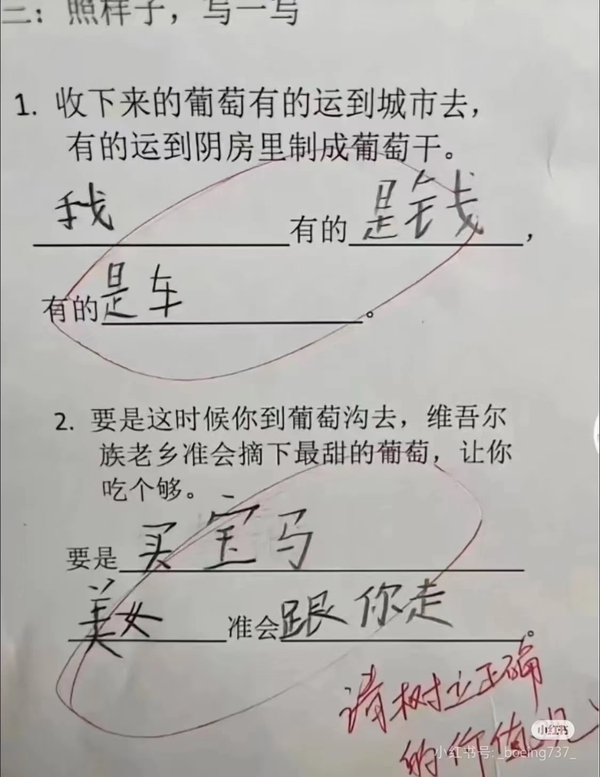 二：照样子，写一写
1. 收下来的葡萄有的运到城市去，
有的运到阴房里制成葡萄干。
我有的是钱，
有的是车。
2. 要是这时候你到葡萄沟去，维吾尔
族老乡准会摘下最甜的葡萄，让你
吃个够。
要是买宝马
美女准会跟你走。
请树立正确
的价值观
小红书
小红书号: _boeing737_